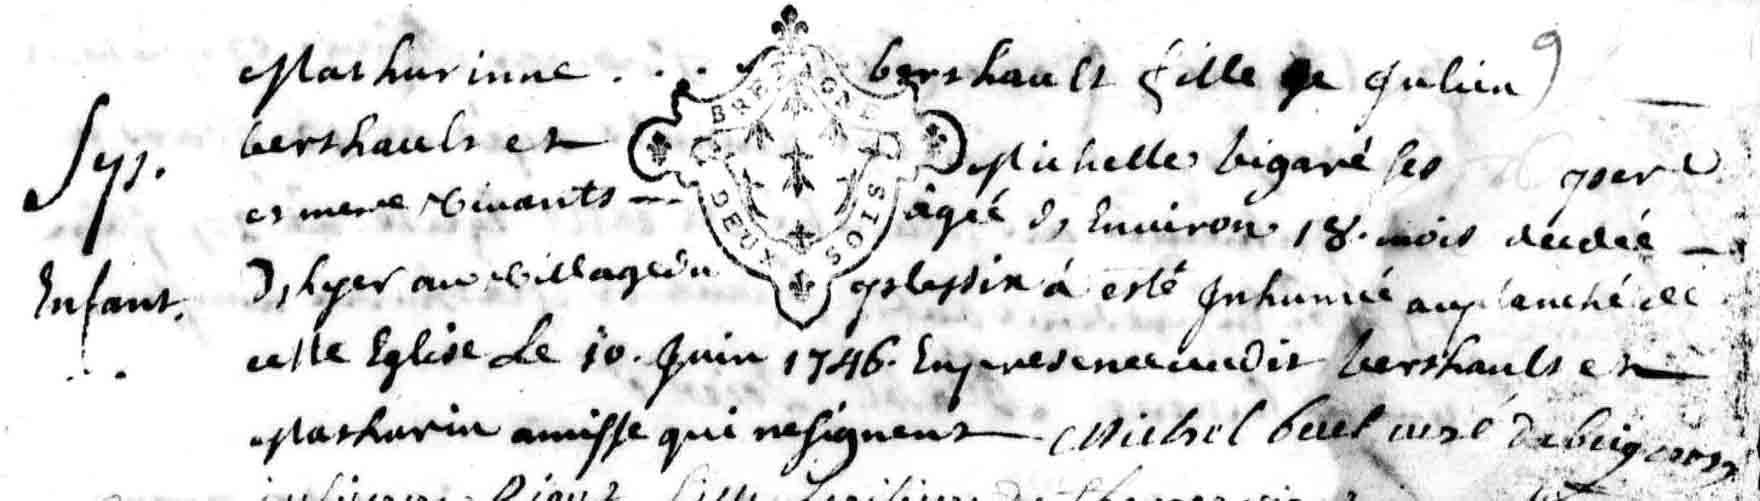 9
Mathurinne . . . berthault fille de Julien
Sys. berthault et Michelle bigaré ses pere
et mere vivants âgée d'Environ 18. mois decedée
Enfant. D'hyer au village du plessix à esté Inhumée au planché de
cette Eglise Le 10. Juin 1746. En presence dudit berthault et
Mathurin amisse qui ne signent Michel curé
BRETAGNE
DEUX SOLS